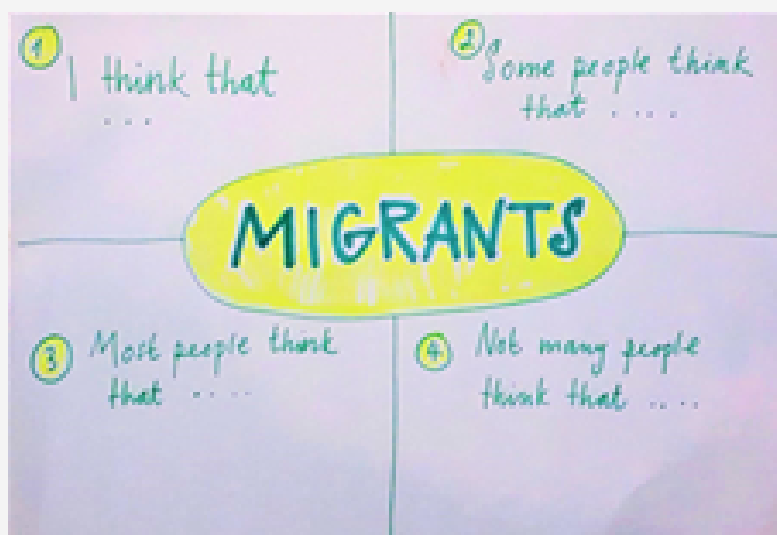 1
I think that
...
2
Some people think
that ....
MIGRANTS
3
Most people think
that ....
4
Not many people
think that ....